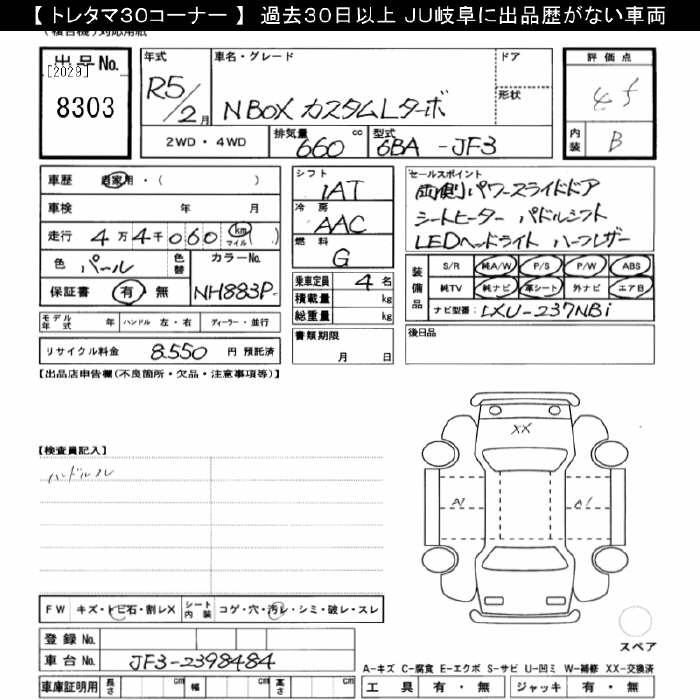 【 トレタマ30コーナー 】 過去30日以上 JU岐阜に出品歴がない車両
(複合機)対応用紙
出品No.
[2029]
8303
年式
R5/2月
車名・グレード
N BOX カスタムLターボ
ドア
形状
評価点
内装
B
2WD・4WD
排気量
660 cc
型式
6BA -JF3
車歴
自家用・( )
車検 年 月
走行 4万4千060 km マイル ( )
色 パール
色替
カラーNo.
NH883P
保証書 有・無
モデル年式 年
ハンドル 左・右
ディーラー・並行
リサイクル料金 8.550 円 預託済
シフト
IAT
冷房
AAC
燃料
G
乗車定員 4 名
積載量 kg
総重量 kg
書類期限
月 日
セールスポイント
両側パワースライドドア
シートヒーター パドルシフト
LEDヘッドライト ハーフレザー
装備品
S/R 純A/W P/S P/W ABS
純TV 純ナビ 革シート 外ナビ エアB
ナビ型番( LXU-237NBi
後日品
【出品店申告欄(不良箇所・欠品・注意事項等)】
【検査員記入】
ハンドルスレ
XX
A1
A1
FW キズ・トビ石・割レX
シート内装 コゲ・穴・汚レ・シミ・破レ・スレ
登録No.
車台No. JF3-2398484
車庫証明用 長さ cm 幅 cm 高さ cm
スペア
A-キズ C-腐食 E-エクボ S-サビ U-凹ミ W-補修 XX-交換済
工具 有・無 ジャッキ 有・無